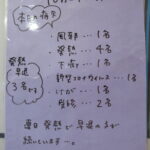 本日の病欠
・風邪 … 1名
・発熱 … 4名
・下痢 … 1名
・新型コロナウイルス … 1名
・けが … 1名
・登院 … 2名
発熱
早退
3名です
連日発熱で早退の方が
続いています…。